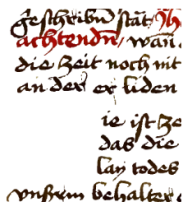 geschribn̄ stat
achtendn̄ / wan̄
die Zeit noch nit
an der er liden
ie ist Ze
das die
lay todes
vnsrem behalter